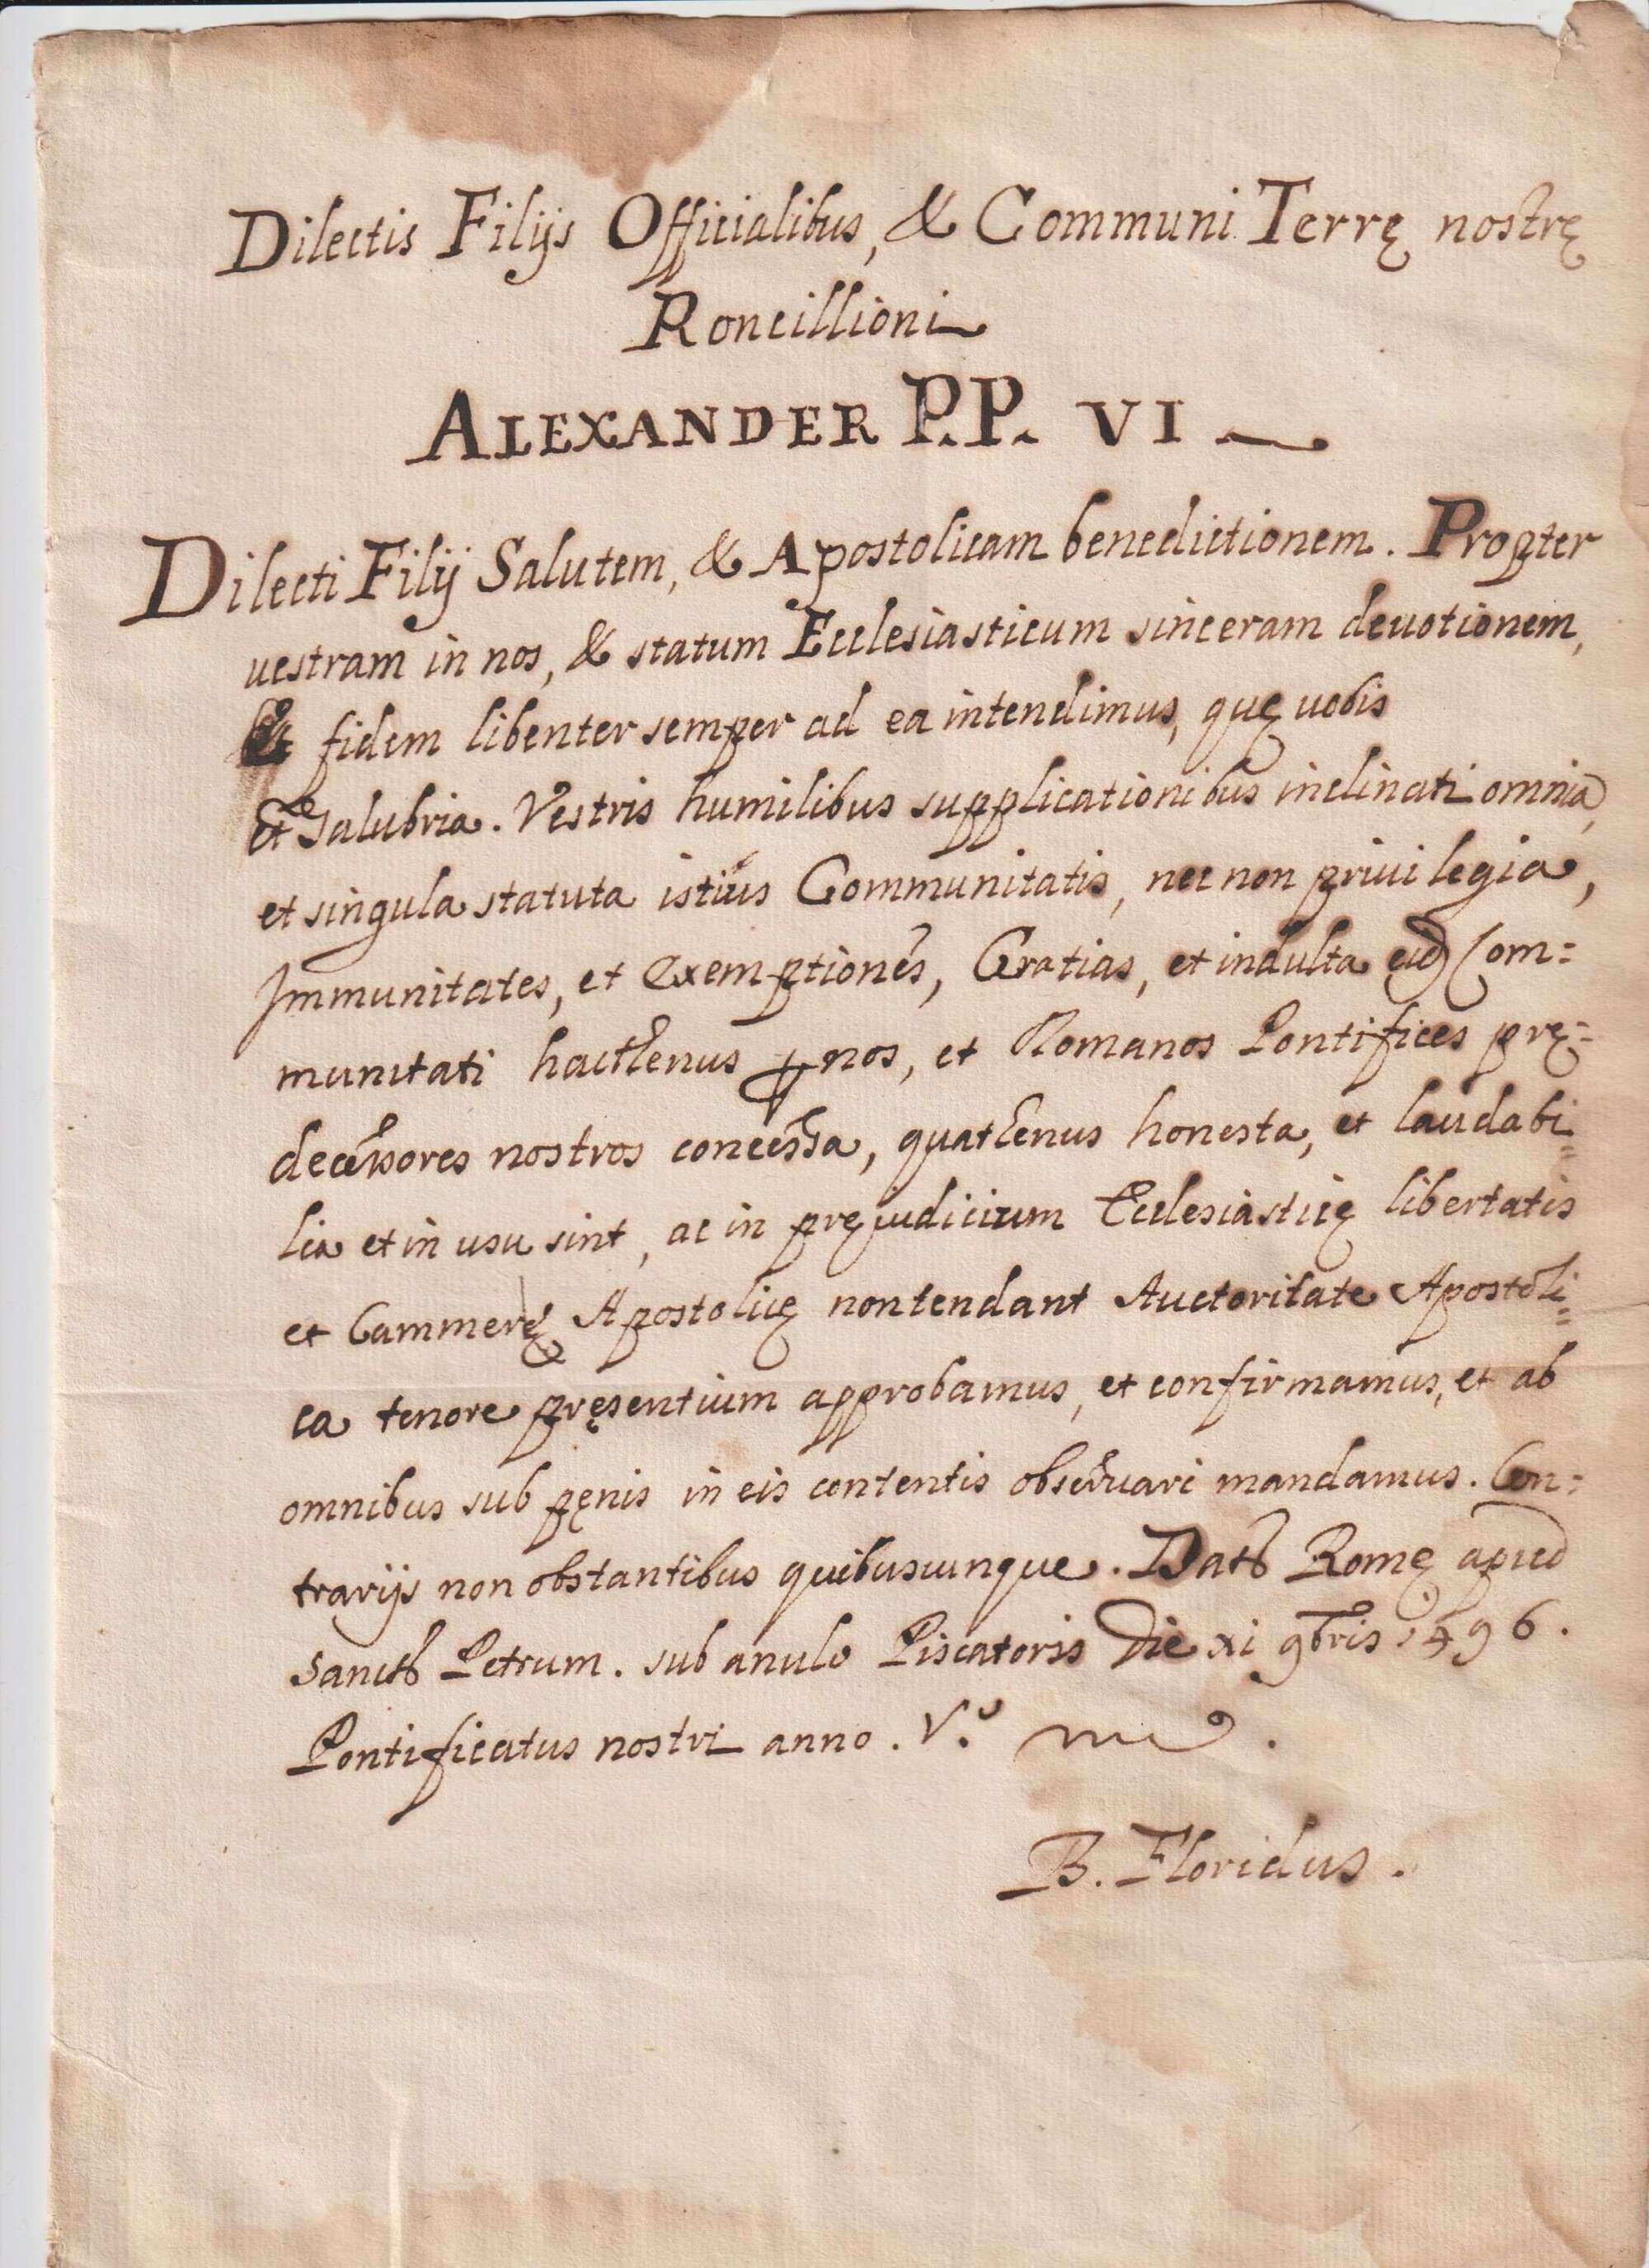 Dilectis Filijs Officialibus, & Communi Terrę nostrę
Roncillioni
ALEXANDER P.P. VI
Dilecti Filij Salutem, & Apostolicam benedictionem. Propter
uestram in nos, & statum Ecclesiasticum sinceram deuotionem,
& fidem libenter semper ad ea intendimus, quę uobis
et salubria. Vestris humilibus supplicationibus inclinati omnia,
et singula statuta istius Communitatis, nec non priuilegia,
Immunitates, et exemptiones, Gratias, et indulta eid Com=
munitati hactenus ꝑ nos, et Romanos Pontifices prę=
decessores nostros concessa, quatenus honesta, et laudabi=
lia et in usu sint, ac in pręjudicium Ecclesiasticę libertatis
et Cammerę Apostolicę non tendant Auctoritate Apostoli=
ca tenore pręsentium approbamus, et confirmamus, et ab
omnibus sub pęnis in eis contentis obseruari mandamus. Con=
trarijs non obstantibus quibuscunque. Dat Romę apud
Sanct Petrum. sub anulo Piscatoris Die xi 9bris 1496.
Pontificatus nostri anno. V.º
B. Floridus.